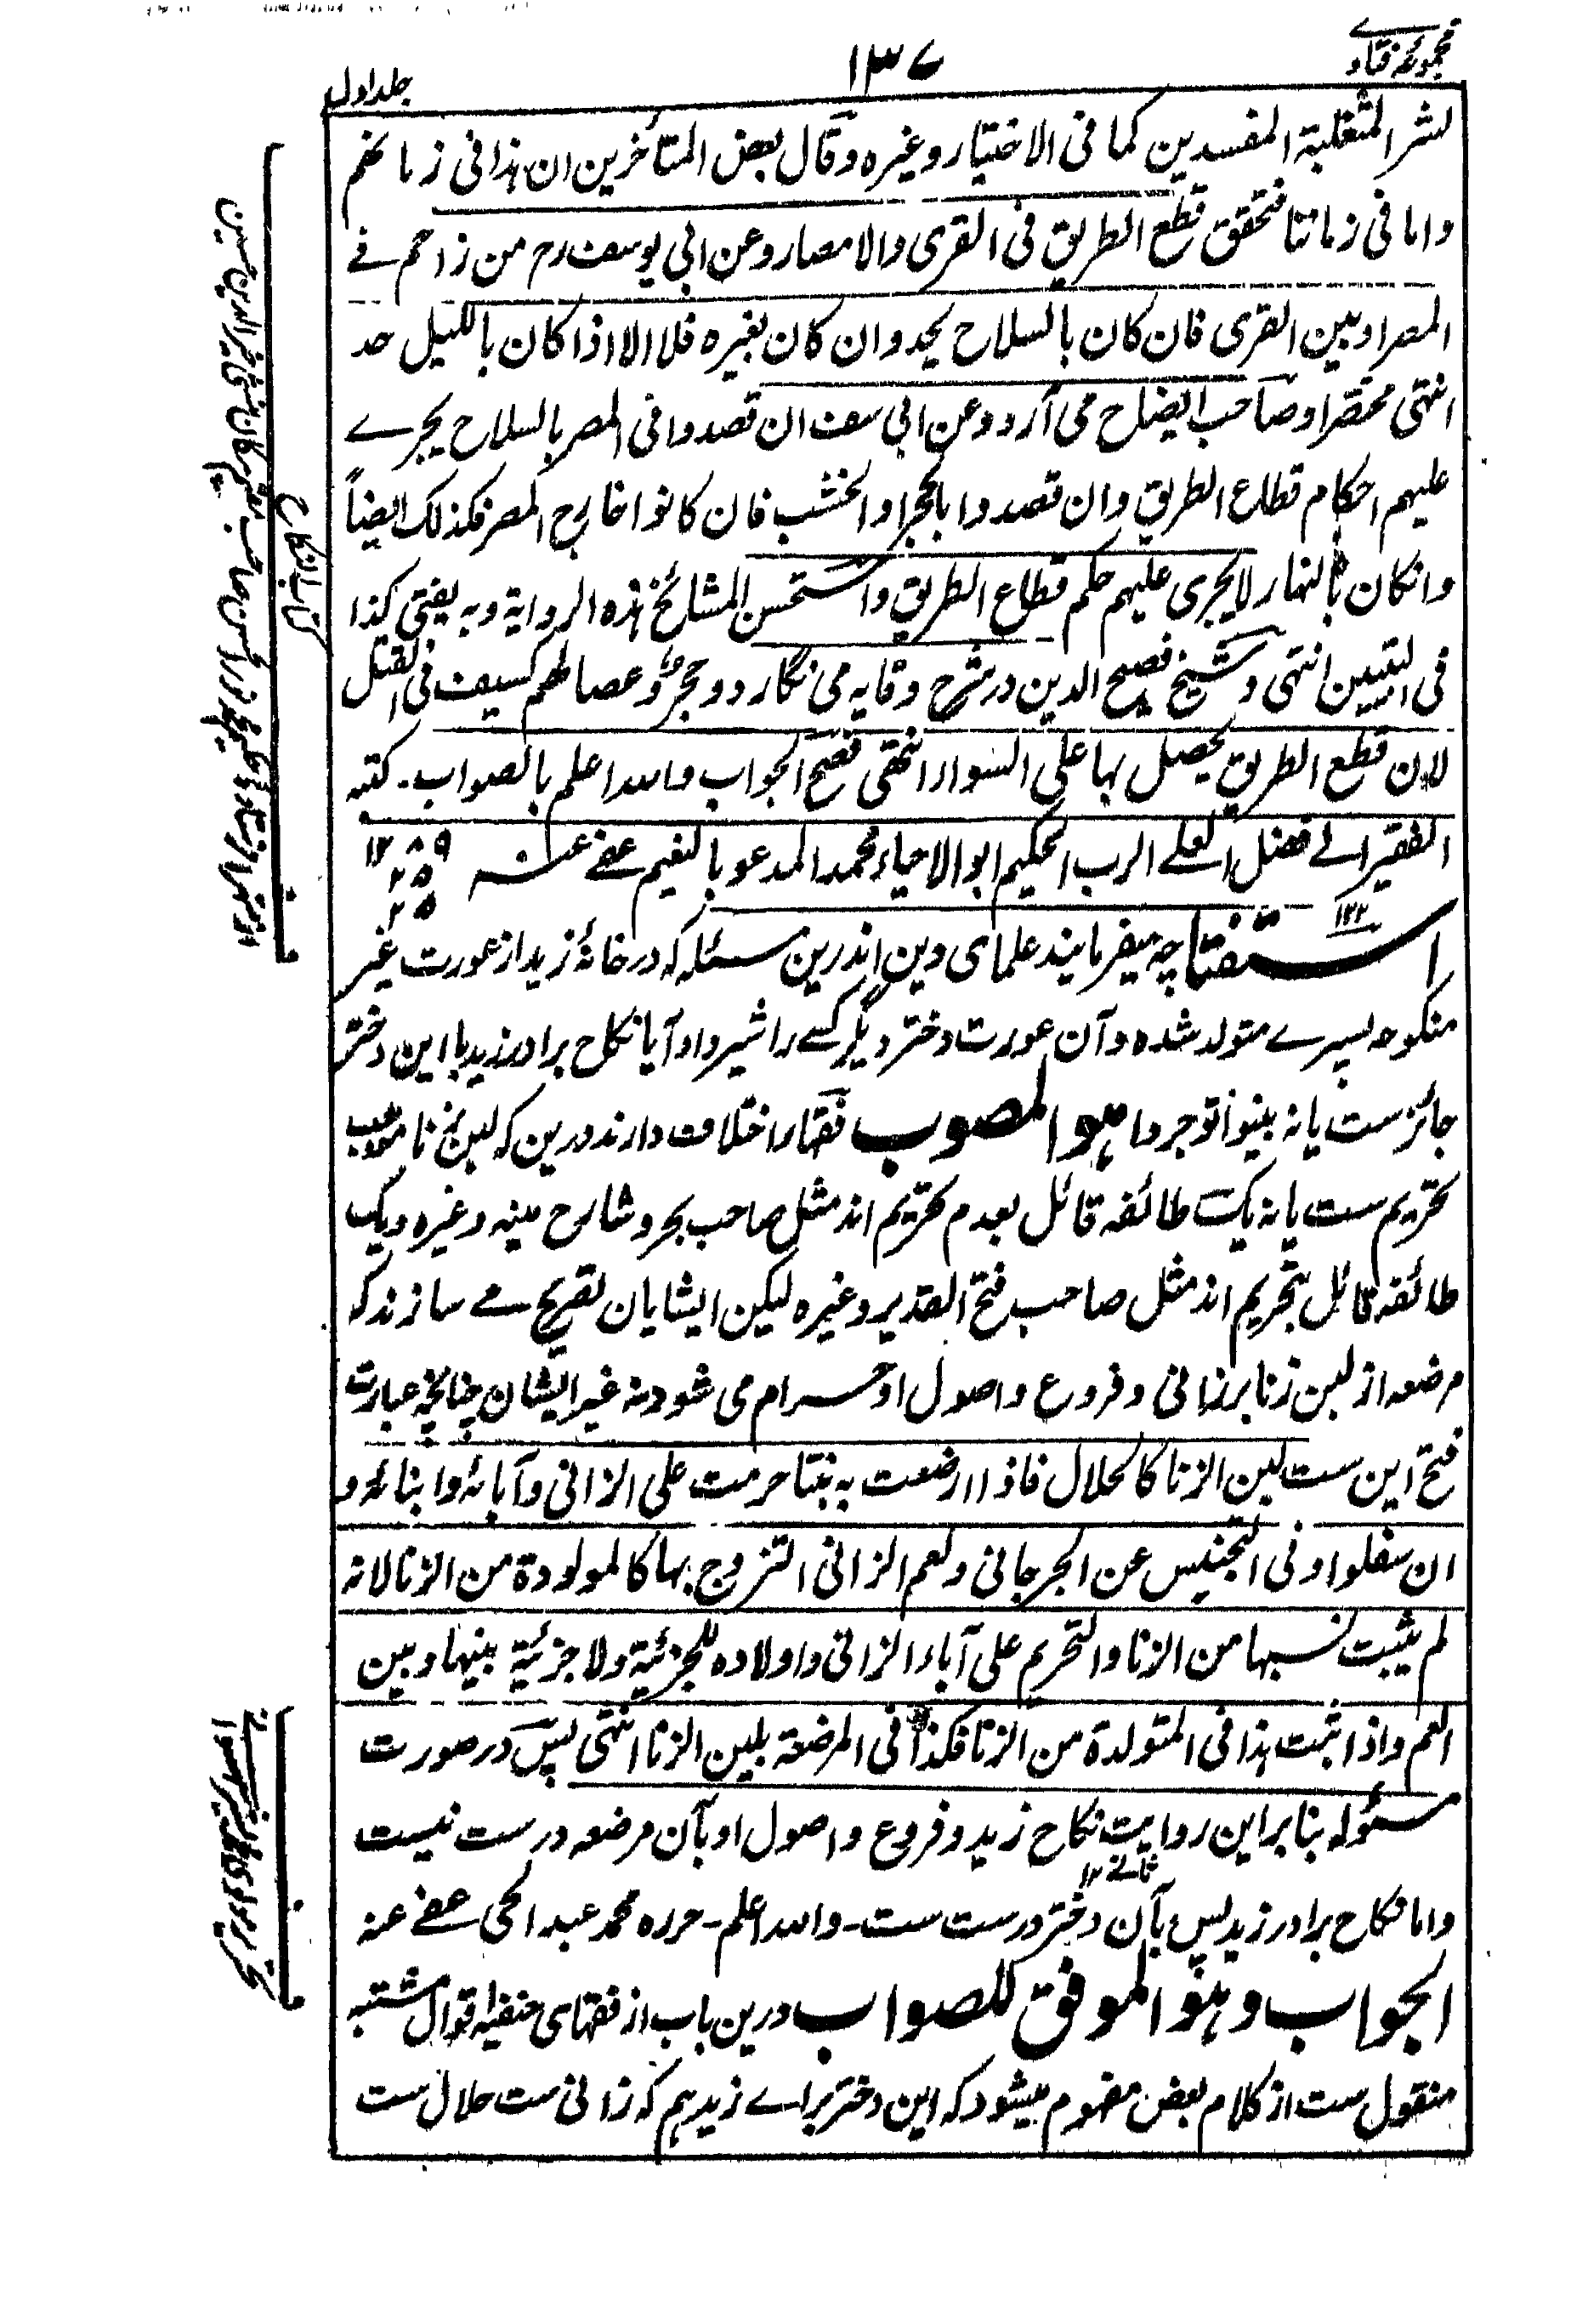 مجموعۂ فتاوے
۱۳۷
جلد اول
لشر المتغلبة المفسدین کما فی الاختیار وغیره وقال بعض المتأخرین ان هذا فی زمانهم
واما فی زماننا فتحقق قطع الطریق فی القری والامصار وعن ابی یوسف رح من زاحم فے
المصر او بین القری فان کان بالسلاح یحد وان کان بغیره فلا الا اذا کان باللیل حد
انتهی مختصرا وصاحب ایضاح می آرد وعن ابی سف ان قصدوا فی المصر بالسلاح یجرے
علیهم احکام قطاع الطریق وان قصدوا بالحجر او الخشب فان کانوا خارج المصر فکذلک ایضاً
وانکان بالنهار لا یجری علیهم حکم قطاع الطریق واستحسن المشائخ هذه الروایة وبه یفتی کذا
فی التبیین انتهی وشیخ فصیح الدین در شرح وقایه می نگارد وحجر وعصا لهم کسیف فی القتل
لان قطع الطریق یحصل بها علی السواء انتهی فصح الجواب والله اعلم بالصواب۔ کتبه
الفقیر الے فضل العلے الرب الحکیم ابو الاحیاء محمد المدعو بالنعیم عفے عنه
۱۲۲
استفتا چه میفرمایند علمای دین اندرین مسئله که در خانۂ زید از عورت غیر
منکوحه پسرے متولد شده وآن عورت دختر دیگر کسے را شیر داد آیا نکاح برادر زید با این دختر
جائزست یا نه بینوا توجروا هو المصوب فقها را اختلاف دارند درین که لبن زنا موجب
تحریم ست یا نه یک طائفه قائل بعدم تحریم اند مثل صاحب بحر وشارح منیه وغیره ویک
طائفه قائل بتحریم اند مثل صاحب فتح القدیر وغیره لیکن ایشایان تصریح مے سازند که
مرضعه از لبن زنا بر زانی وفروع واصول او حرام می شود نه غیر ایشان چنانچه عبارت
فتح این ست لبن الزنا کالحلال فاذا ارضعت به بنتا حرمت علی الزانی وآبائه وابنائه و
ان سفلوا وفی التجنیس عن الجرجانی ولعم الزانی التزوج بها کالمولودة من الزنا لانه
لم یثبت نسبها من الزنا والتحریم علی آباء الزانی واولاده للجزئیة ولا جزئیة بینها وبین
العم واذا ثبت هذا فی المتولدة من الزنا فکذا فی المرضعة بلبن الزنا انتهی پس در صورت
مسئوله بنا بر این روایت نکاح زید وفروع واصول او بآن مرضعه درست نیست
واما نکاح برادر زید پس بآن دختر درست ست۔ والله اعلم۔ حرره محمد عبد الحی عفے عنه
الجواب وهو الموفق للصواب درین باب از فقهای حنفیه اقوال مشتبه
منقول ست از کلام بعض مفهوم میشود که این دختر براے زید هم که زانی ست حلال ست
کتاب النکاح